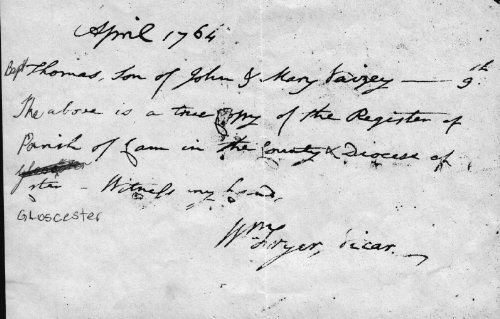 April 1764
Bapt Thomas, Son of John & Mary Vaizey — 9th
The above is a true Copy of the Register of
Parish of Cam in the County & Diocese of
ster - Witness my hand,
GLOSCESTER
Wm Fryer, Vicar.